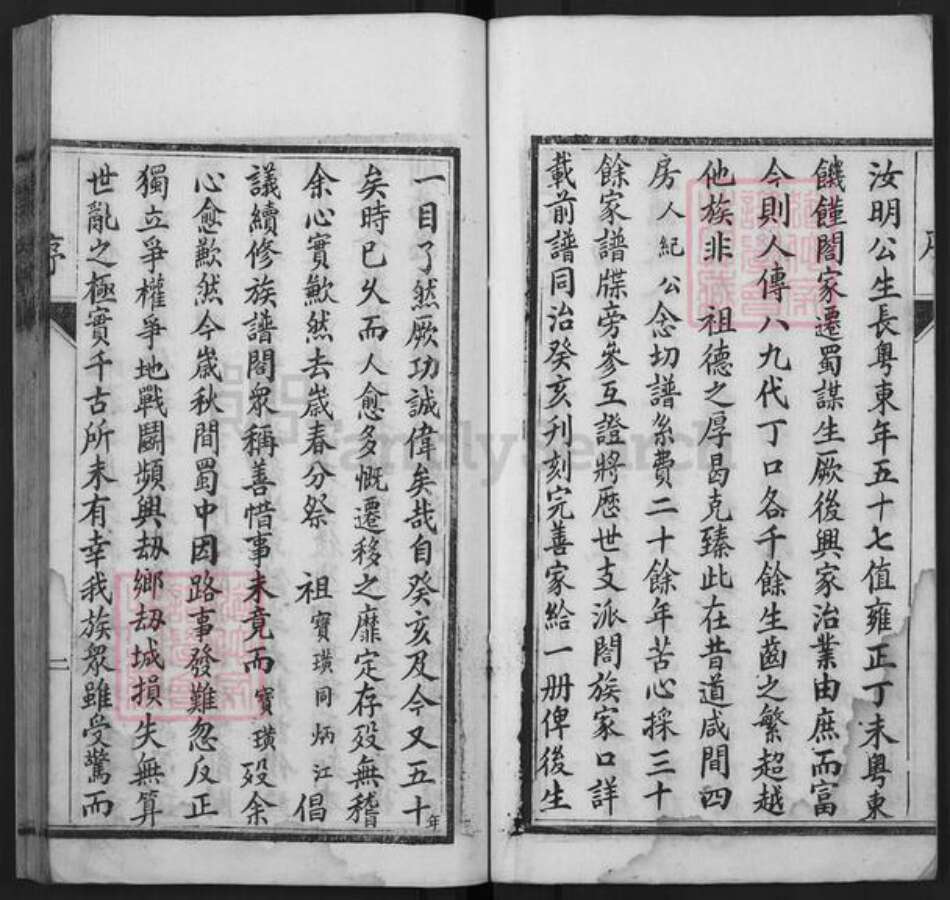 汝明公生長粵東年五十七值雍正丁未粵東
饑饉閤家遷蜀謀生厥後興家治業由庶而富
今則人傳八九代丁口各千餘生齒之繁超越
他族非 祖德之厚曷克臻此在昔道咸間四
房人紀公念切譜系費二十餘年苦心採三十
餘家譜牒旁參互證將歷世支派閤族家口詳
載前譜同治癸亥刊刻完善家給一册俾後生
一目了然厥功誠偉矣哉自癸亥及今又五十年
矣時已久而人愈多慨遷移之靡定存歿無稽
余心實歉然去歲春分祭 祖寶璜同炳江倡
議續修族譜閤眾稱善惜事未竟而寶璜歿余
心愈歉然今歲秋間蜀中因路事發難忽反正
獨立爭權爭地戰鬬頻興刼鄉刼城損失無算
世亂之極實千古所未有幸我族眾雖受驚而
序
二
FamilySearch